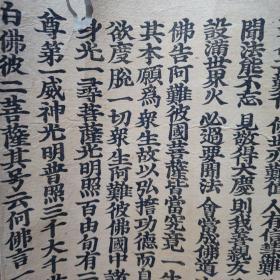 聞法能不忘 見敬得大慶 則我善親友
設滿世界火 必過要聞法 會當成佛道
佛告阿難彼國菩薩皆當究竟一生
其本願為衆生故以弘誓功德而自
欲度脫一切衆生阿難彼佛國中諸
身光一尋菩薩光明照百由旬有二
尊第一威神光明普照三千大千世
白佛彼二菩薩其号云何佛言一